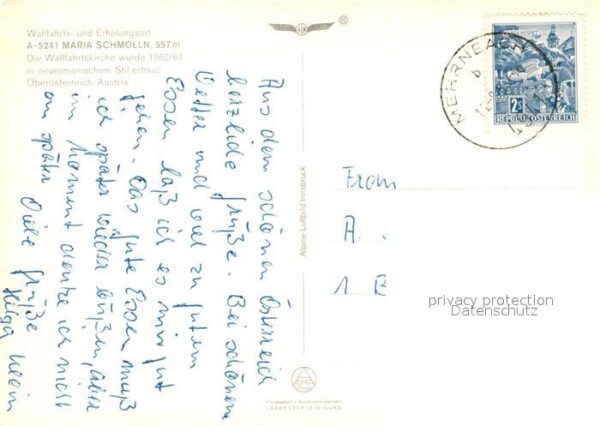 Wallfahrts- und Erholungsort
A-5241 MARIA SCHMOLLN, 557 m
Die Wallfahrtskirche wurde 1860/61
in neuromanischem Stil erbaut
Oberösterreich, Austria
®
MEHRNBACH
KLAGENFURT
2S
REPUBLIK ÖSTERREICH
Aus dem schönen Österreich
herzliche Grüße. Bei schönem
Wetter und viel zu gutem
Essen laß ich es mir gut
gehen. Das gute Essen muß
ich später wieder büßen, aber
im Moment denke ich nicht
an später. Viele Grüße
Helga
Alpine Luftbild Innsbruck
Frau
A.
1 B
privacy protection
Datenschutz
LANDESVERTEIDIGUNG